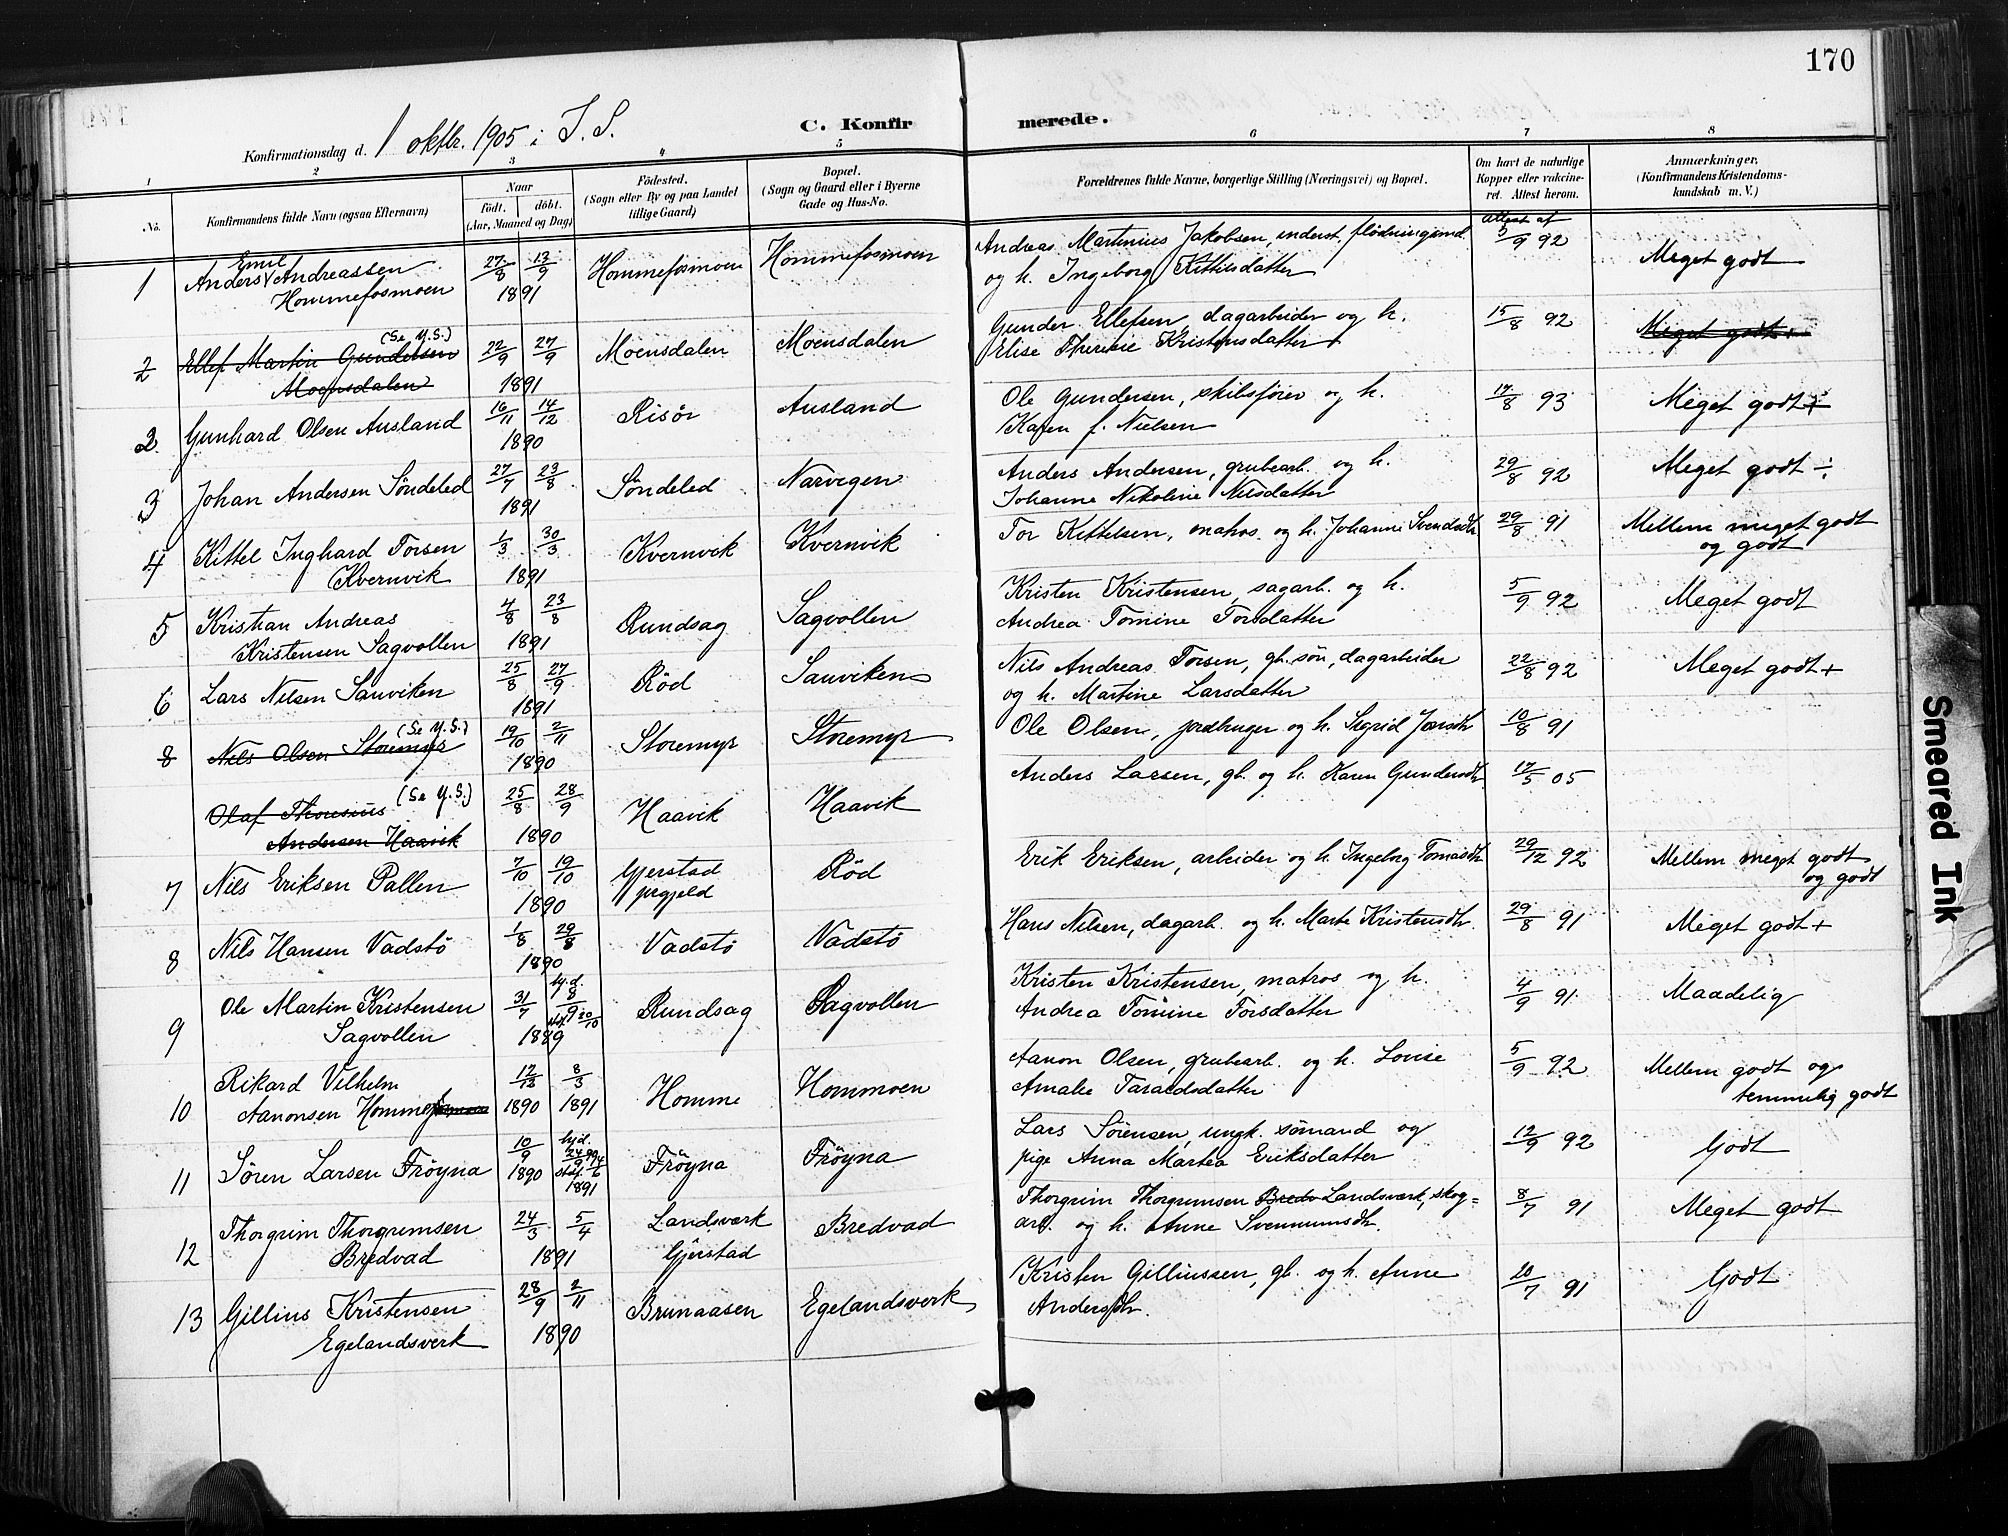 170
Konfirmationsdag d. 1 oktbr. 1905 i I. S.
C. Konfirmerede.
1 2 3 4 5 6 7 8
No.
Konfirmandens fulde Navn (ogsaa Efternavn)
Naar
født. døbt.
(Aar, Maaned og Dag)
Fødested.
(Sogn eller By og paa Landet
tillige Gaard)
Bopæl.
(Sogn og Gaard eller i Byerne
Gade og Hus-No.
Forældrenes fulde Navne, borgerlige Stilling (Næringsvei) og Bopæl.
Om havt de naturlige
Kopper eller vakcine-
ret. Attest herom.
Anmærkninger.
(Konfirmandens Kristendoms-
kundskab m. V.)
1 Anders Emil Andreassen Hommefosmoen 27/8 13/9 1891 Hommefosmoen Hommefosmoen
Andreas Martinius Jakobsen, inderst, flødningsmd. Attest af 5/9 92 Meget godt
og h. Ingeborg Kittilsdatter
2 Ellef Martin Gundersen (Se Y.S.) Moensdalen 22/9 27/9 1891 Moensdalen Moensdalen
Gunder Ellefsen, dagarbeider og h. 15/8 92 Meget godt+
Elise Theresie Kristensdatter
2 Gunhard Olsen Ausland 16/11 14/12 1890 Risör Ausland
Ole Gundersen, skibsfører og h. 17/8 93 Meget godt+
Karen f. Nielsen
3 Johan Andersen Söndeled 27/7 23/8 1891 Söndeled Narvigen
Anders Andersen, grubearb. og h. 29/8 92 Meget godt ÷
Johanne Nikoline Nilsdatter
4 Kittel Inghard Torsen Kvernvik 1/3 30/3 1891 Kvernvik Kvernvik
Tor Kittelsen, matros og h. Johanne Svendsdtr 29/8 91 Mellem meget godt
og godt
5 Kristian Andreas Kristensen Sagvollen 4/8 23/8 1891 Rundsag Sagvollen
Kristen Kristensen, sagarb. og h. 5/9 92 Meget godt
Andrea Tomine Torsdatter
6 Lars Nilsen Sauviken 25/8 27/9 1891 Röd Sauviken
Nils Andreas Torsen, gb. sön, dagarbeider 22/8 92 Meget godt+
og h. Martine Larsdatter
8 Nils Olsen Storemyr (Se Y.S.) 19/10 2/11 1890 Storemyr Storemyr
Ole Olsen, jordbruger og h. Sigrid Jonsdtr 10/8 91
Olaf Thomsius (Se Y.S.) Andersen Haavik 25/8 28/9 1890 Haavik Haavik
Anders Larsen, gb. og h. Karen Gundersdtr 17/5 05
7 Nils Eriksen Pallen 7/10 19/10 1890 Gjerstad prgjeld Röd
Erik Eriksen, arbeider og h. Ingeborg Tomasdtr 29/12 92 Mellem meget godt
og godt
8 Nils Hansen Vadstö 1/8 29/8 1890 Vadstö Vadstö
Hans Nilsen, dagarb. og h. Marte Kristensdtr. 29/8 91 Meget godt+
9 Ole Martin Kristensen Sagvollen 31/7 hj.d. 8/9 stadf. 20/10 1889 Rundsag Sagvollen
Kristen Kristensen, matros og h. 4/9 91 Maadelig
Andrea Tomine Torsdatter
10 Rikard Vilhelm Aanonsen Homme 12/12 1890 8/3 1891 Homme Hommoen
Aanon Olsen, grubearb. og h. Lovise 5/9 92 Mellem godt og
Amalie Taraldsdatter temmelig godt
11 Sören Larsen Fröyna 10/9 1890 hjd. 24/9 90 stadf. 14/6 1891 Fröyna Fröyna
Lars Sörensen, ungk. sömand og 12/9 92 Godt
pige Anna Martea Eriksdatter
12 Thorgrim Thorgrimsen Bredvad 24/3 5/4 1891 Landsværk Gjerstad Bredvad
Thorgrim Thorgrimsen Bredv Landsværk, skog- 8/7 91 Meget godt
arb. og h. Anne Svennumsdtr.
13 Gillius Kristensen Egelandsverk 28/9 2/11 1890 Brunaasen Egelandsverk
Kristen Gilliussen, gb. og h. Anne 20/7 91 Godt
Andersdtr.
Smeared Ink